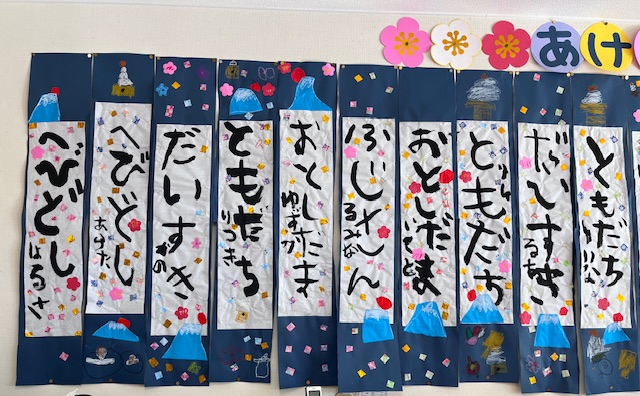 あけ
へびどし
はるさ
へびどし
だいすき
ともだち
りつき
おとしだま
ゆずか
ふじさん
るみな
おとしだま
ともだち
だいすき
ともだち